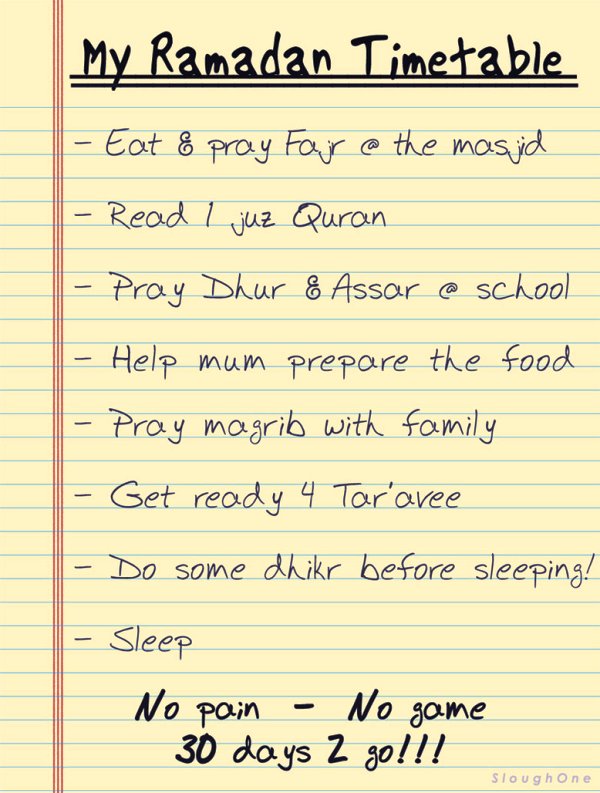 My Ramadan Timetable
- Eat & pray Fajr @ the masjid
- Read 1 juz Quran
- Pray Dhur & Assar @ school
- Help mum prepare the food
- Pray magrib with family
- Get ready 4 Tar'avee
- Do some dhikr before sleeping!
- Sleep
No pain - No game
30 days 2 go!!!
SloughOne